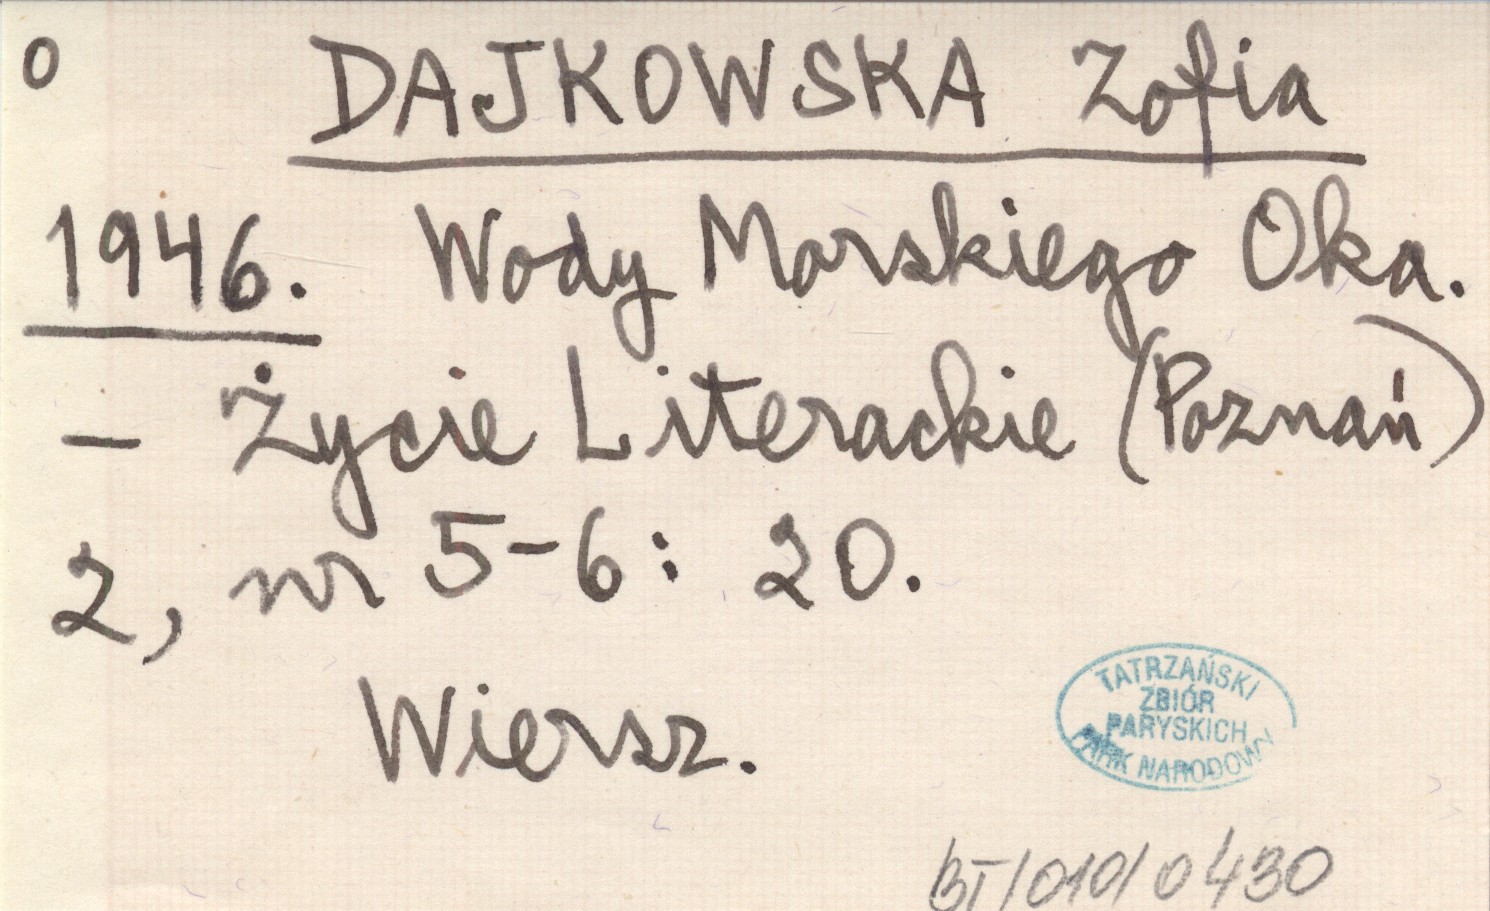 0 DAJKOWSKA Zofia
1946. Wody Morskiego Oka.
– Życie Literackie (Poznań)
2, nr 5-6: 20.
Wiersz.
TATRZAŃSKI
ZBIÓR
PARYSKICH
PARK NARODOWY
BT/010/0430